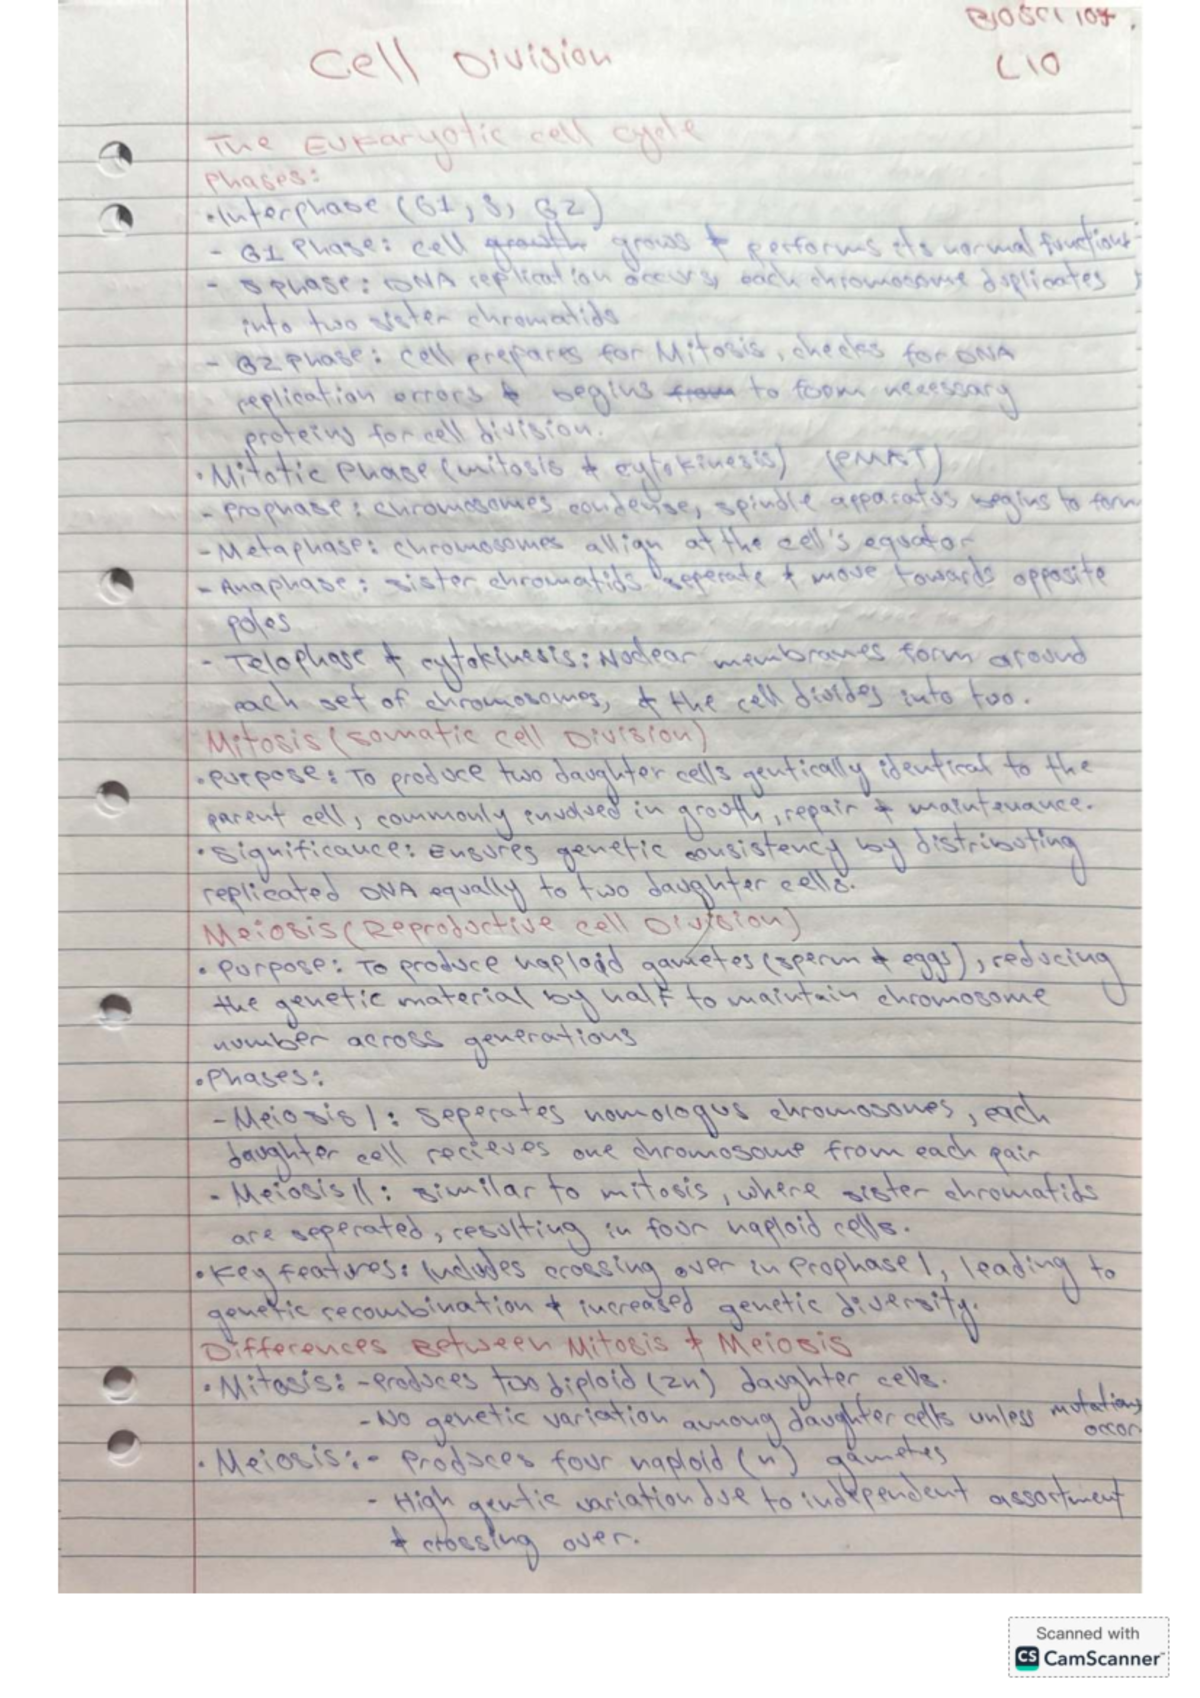 BIOSCI 107.
Cell Division
L10
The Eukaryotic cell cycle
Phases:
• Interphase (G1, S, G2)
- G1 Phase: cell growth grows & performs its normal functions
- S phase: DNA replication occurs, each chromosome duplicates
into two sister chromatids
- G2 Phase: cell prepares for Mitosis, checks for DNA
replication errors & begins from to form necessary
proteins for cell division.
• Mitotic Phase (mitosis & cytokinesis) (PMAT)
- Prophase: chromosomes condense, spindle apparatus begins to form
- Metaphase: chromosomes allign at the cell's equator
- Anaphase: sister chromatids seperate & move towards opposite
poles
- Telophase & cytokinesis: Nuclear membranes form around
each set of chromosomes, & the cell divides into two.
Mitosis (Somatic cell Division)
• Purpose: To produce two daughter cells gentically identical to the
parent cell, commonly involved in growth, repair & maintenance.
• Significance: Ensures genetic consistency by distributing
replicated DNA equally to two daughter cells.
Meiosis (Reproductive cell Division)
• Purpose: To produce haploid gametes (sperm & eggs), reducing
the genetic material by half to maintain chromosome
number across generations
• Phases:
- Meiosis I: Seperates homologus chromosomes, each
daughter cell recieves one chromosome from each pair
- Meiosis II: similar to mitosis, where sister chromatids
are seperated, resulting in four haploid cells.
• Key features: Includes crossing over in Prophase I, leading to
genetic recombination & increased genetic diversity.
Differences Between Mitosis & Meiosis
• Mitosis: - Produces two diploid (2n) daughter cells.
- No genetic variation among daughter cells unless mutations
occur
• Meiosis: - Produces four haploid (n) gametes
- High gentic variation due to independent assortment
& crossing over.
Scanned with
CS CamScanner